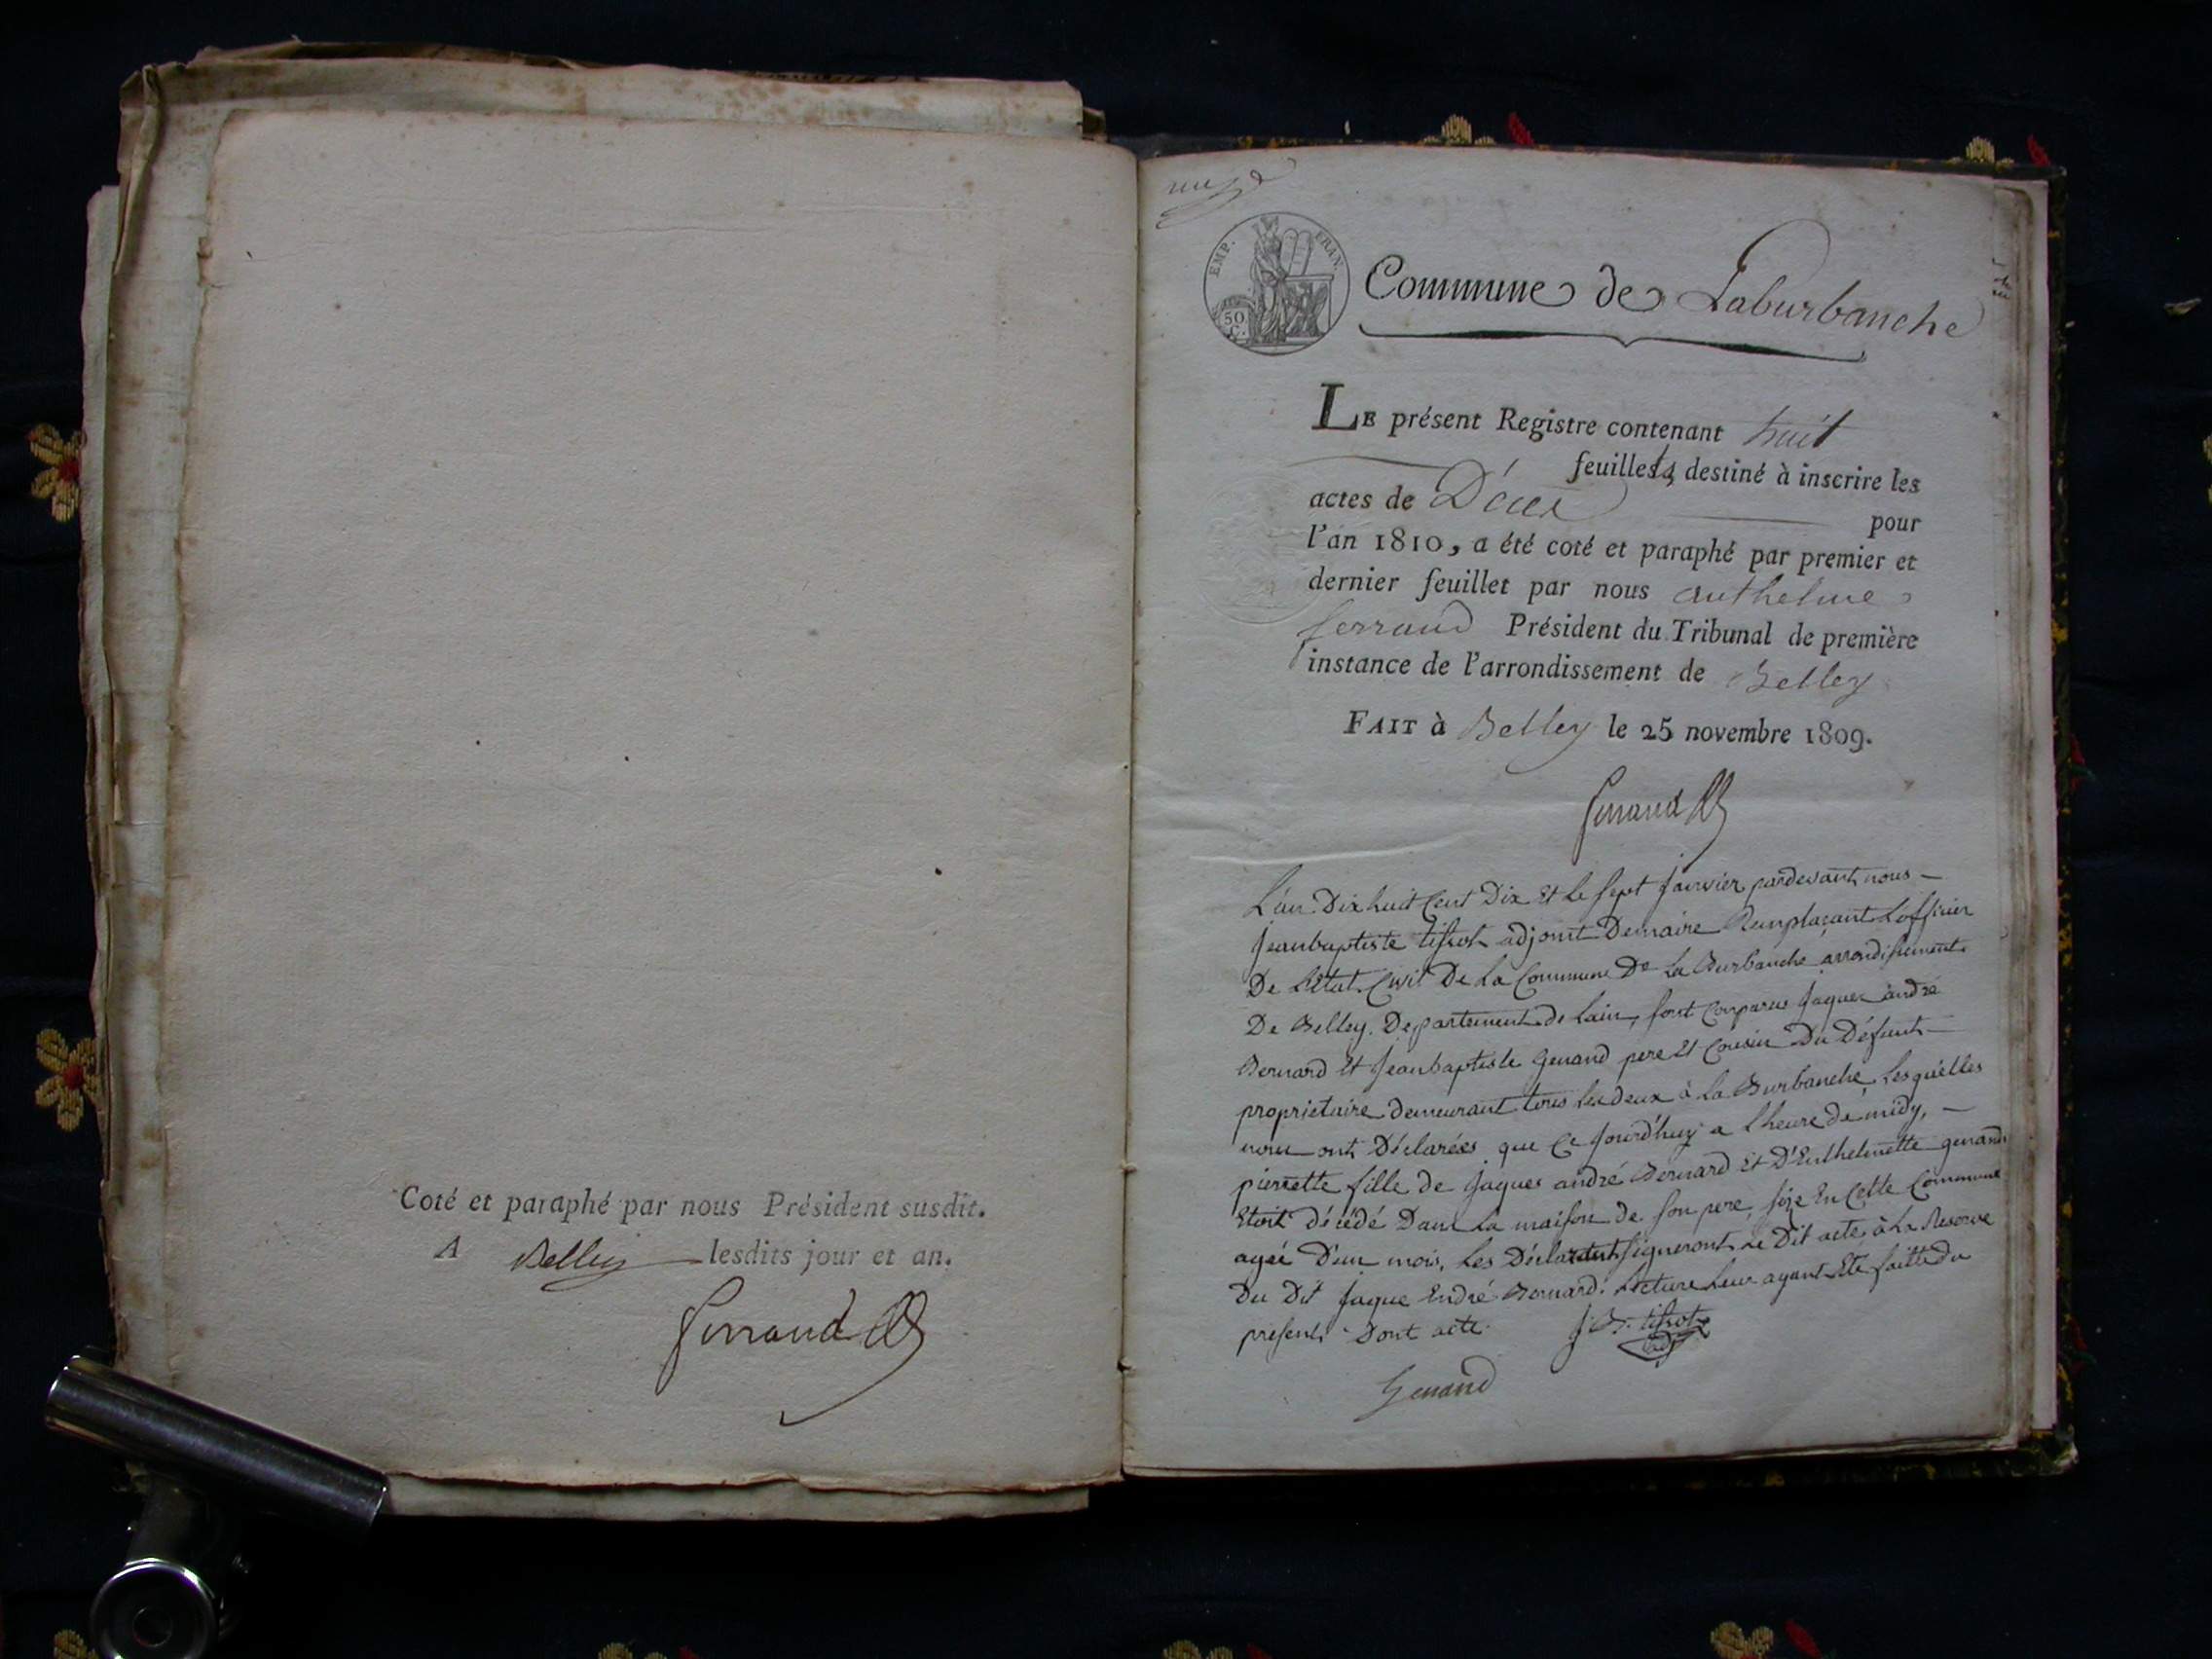 Coté et paraphé par nous Président susdit.
A Belley lesdits jour et an.
ferrand
EMP. FRAN.
50 C.
Commune de Laburbanche
LE présent Registre contenant huit
feuillets, destiné à inscrire les
actes de Décès pour
l'an 1810, a été coté et paraphé par premier et
dernier feuillet par nous anthelme
ferrand Président du Tribunal de première
instance de l'arrondissement de Belley
FAIT à Belley le 25 novembre 1809.
ferrand
L'an Dix huit Cent Dix Et le sept janvier pardevant nous
jeanbaptiste tissot adjoint Demaire Remplaçant Lofficier
De LEtat Civil De La Commune De La Burbanche arrondissement
De Belley. Departement de Lain, sont Comparus jaques andré
Bernard Et jeanbaptiste Genand pere Et Cousin Du Défunt
proprietaire demeurant tous les deux à la Burbanche, Lesquelles
nous ont Déclarées que Ce jourd'huy a l'heure de midy,
pierrette fille de jaques andré Bernard Et D'Enthelmette genand
Etoit décédé Dans La maison de son pere, size En Cette Commune
ageé D'un mois, Les Déclarant signeront Le Dit acte à La Reserve
Du Dit jaque Endré Bernard. Lecture Leur ayant Eté faitte du
present Dont acte. J B. tissot
Genand